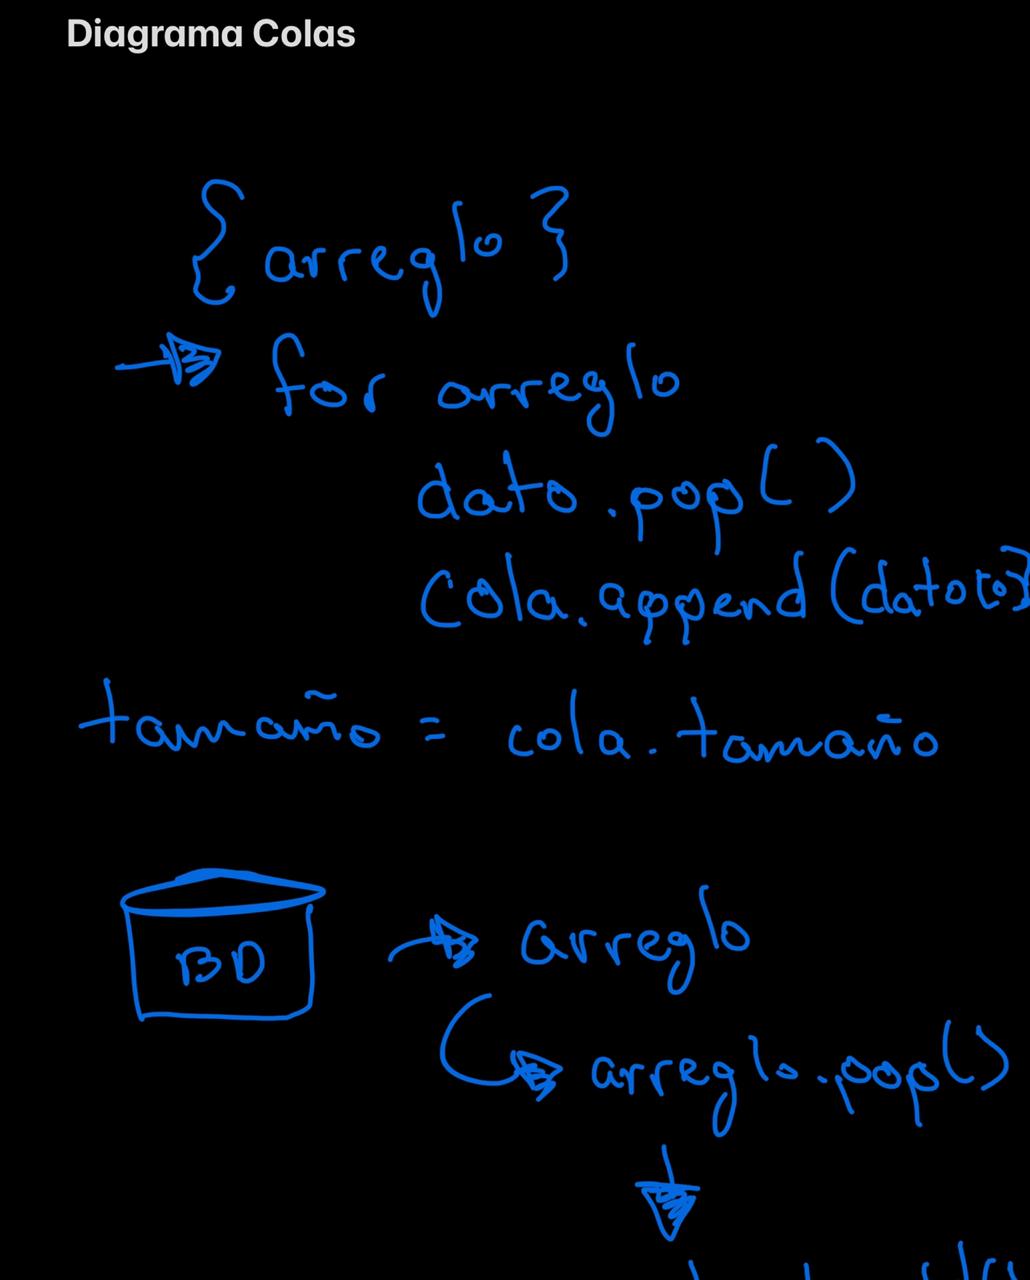 Diagrama Colas
{arreglo}
for arreglo
dato.pop()
Cola.append(dato[0]
tamaño = cola.tamaño
BD
arreglo
arreglo.pop()